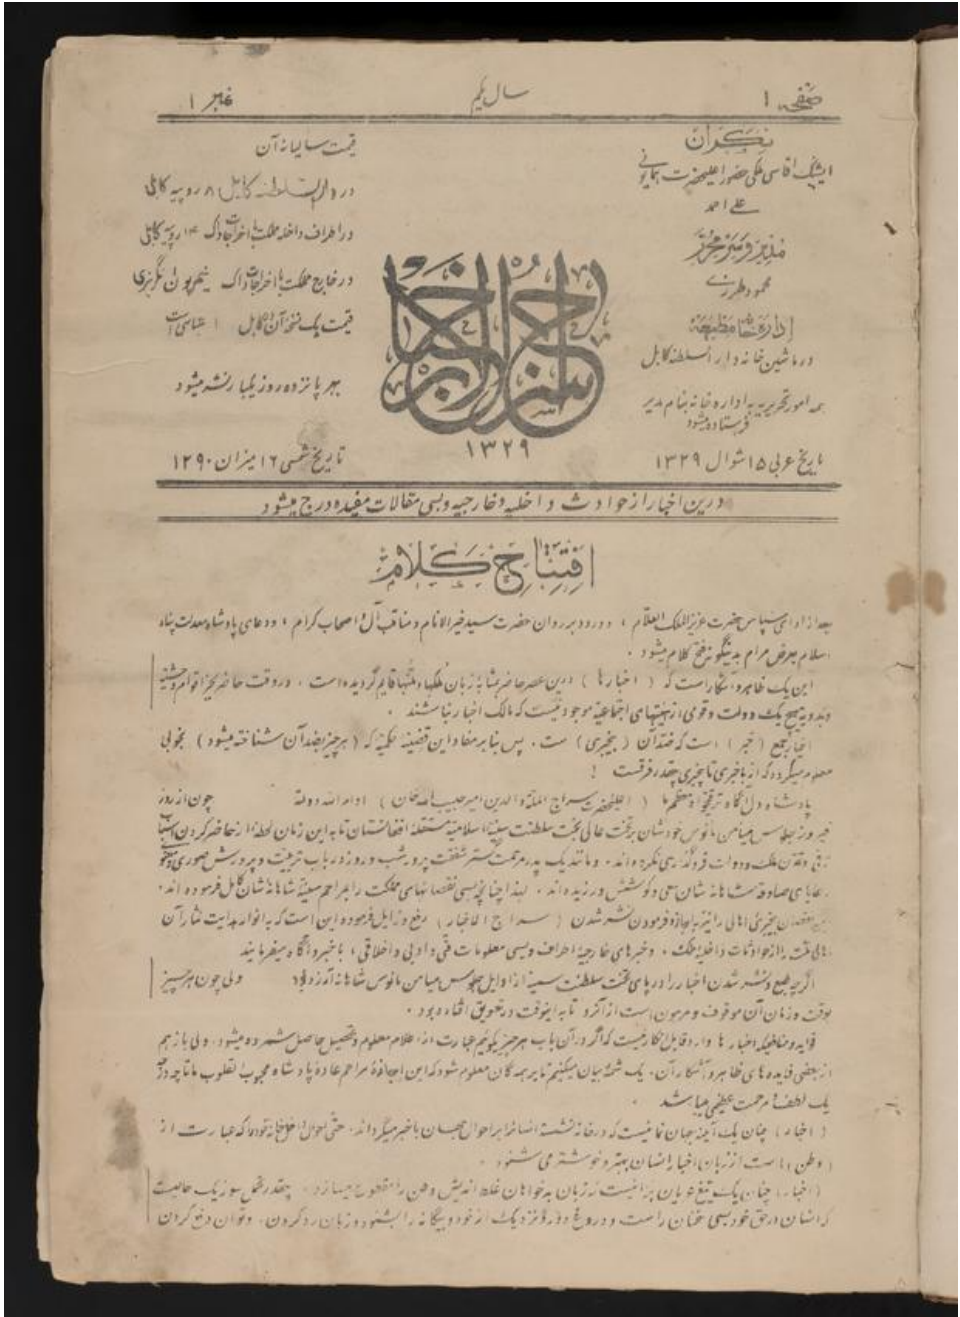 صفحه ۱
سال یکم
نمبر ۱
نگران
ایشک اقاسی ملکی حضور اعلیحضرت همایونی
علی احمد
مدیر و سر محرر
محمود طرزی
اداره خانه و مطبعه
در ماشین خانه دار السلطنه کابل
همه امور تحریریه به اداره خانه بنام مدیر
فرستاده میشود
تاریخ عربی ۱۵ شوال ۱۳۲۹
سراج الاخبار
۱۳۲۹
قیمت سالیانه آن
در دار السلطنه کابل ۸ روپیه کابلی
در اطراف داخله مملکت با اخراجات داک ۱۴ روپیه کابلی
در خارج مملکت با اخراجات داک نیم پون انگریزی
قیمت یک نسخه آن در کابل ۱ عباسی است
بهر پانزده روز یکبار نشر میشود
تاریخ شمسی ۱۶ میزان ۱۲۹۰
درین اخبار از حوادث داخلیه و خارجیه و بسی مقالات مفیده درج میشود
افتتاح کلام
بعد از ادای سپاس حضرت عزیز الملک العلام ، و درود بر روان حضرت سید خیر الانام و مناقب آل و اصحاب کرام ، و دعای پادشاه معدلت پناه
اسلام بعرض مرام بدینگونه فتح کلام میشود .
این یک ظاهر و آشکار است که ( اخبارها ) درین عصر حاضر بمثابه زبان ملکها و ملتها قایم گردیده است . در وقت حاضر بجز اقوام وحشیه
و بدویه هیچ یک دولت و قومی از هیئتهای اجتماعیه موجود نیست که مالک اخبار نباشند .
اخبار جمع ( خبر ) است که ضد آن ( بیخبری ) ست . پس بنا بر مفاد این قضیه حکمیه که ( هر چیز بضد آن شناخته میشود ) بخوبی
معلوم میگردد که از باخبری تا بیخبری چقدر فرقست !
پادشاه دل آگاه ترقیخواه معظم ما ( اعلیحضرت سراج الملة والدین امیر حبیب الله خان ) ادام الله دولته چون از روز
فیروز جلوس میامن مانوس خودشان بر تخت عالی بخت سلطنت سنیه اسلامیه مستقله افغانستان تا به این زمان لحظه از حاضر کردن اسباب
ترقی و تمدن ملک و دولت فروگذاری نکرده اند . و مانند یک پدر مرحمت گستر شفقت پرور شب و روز در باب تربیت و پرورش صوری و معنوی
رعایای صادقه شاهانه شان سعی و کوشش ورزیده اند . لهذا چنانچه بسی نقصانهای مملکت را بمراحم سنیه شاهانه شان کامل فرموده اند .
نقصان بیخبری اهالی را نیز به اجازه فرمودن نشر شدن ( سراج الاخبار ) رفع و زایل فرموده این است که به انوار هدایت نثار آن
اهالی ملت را از حوادثات داخله ملک ، و خبرهای خارجیه اطراف و بسی معلومات فنی و ادبی و اخلاقی ، باخبر و آگاه میفرمایند
اگر چه طبع و نشر شدن اخبار را در پای تخت سلطنت سنیه از اوایل جلوس میامن مانوس شاهانه آرزو بود ولی چون هر چیز
بوقت و زمان آن موقوف و مرهون است از آنرو تا به اینوقت در تعویق افتاده بود .
فواید و منافعیکه اخبارها دارد قابل انکار نیست که اگر در آن باب هر چیز بگوئیم عبارت از اعلام معلوم و تحصیل حاصل شمرده میشود . ولی باز هم
از بعضی فایده های ظاهر و آشکار آن ، یک شمه بیان میکنیم تا بر همه گان معلوم شود که این اجازه مراحم عاده پادشاه محبوب القلوب ما تا چه درجه
یک لطف و مرحمت عظیمی میباشد .
( اخبار ) چنان یک آئینه جهان نمائیست که در خانه نشسته انسانرا بر احوال جهان باخبر میگرداند . حتی احوال داخل خانه خود را که عبارت از
( وطن ) است از زبان اخبار انسان بهتر و خوشتر می شنود .
( اخبار ) چنان یک تیغ عریان برانیست که زبان بدخواهان غلط اندیش وطن را مقطوع میسازد . چقدر تحمل سوز یک حالیست
که انسان در حق خود بسی سخنان راست و دروغ دور و نزدیک از خود و بیگانه را بشنود و زبان رد کردن ، و توان دفع کردن